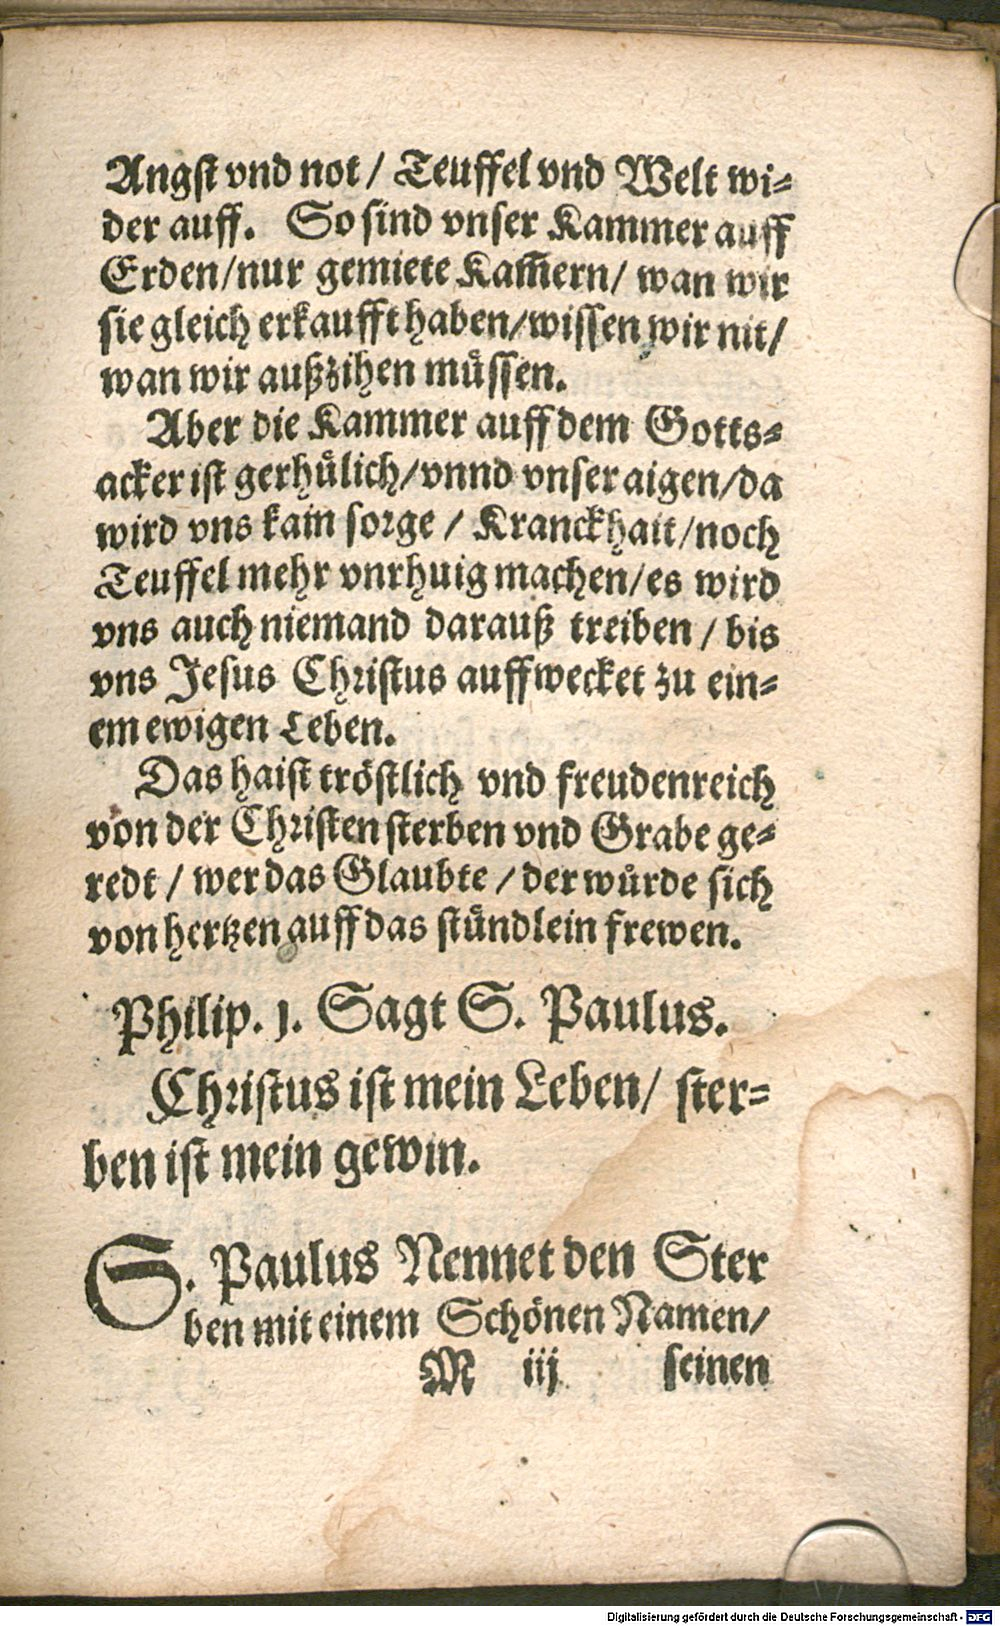 Angst vnd not / Teuffel vnd Welt wi⸗
der auff. So sind vnser Kammer auff
Erden/nur gemiete Kam̅ern/ wan wir
sie gleich erkaufft haben/wissen wir nit/
wan wir außzihen müssen.
Aber die Kammer auff dem Gotts⸗
acker ist gerhülich/vnnd vnser aigen/da
wird vns kain sorge / Kranckhait/noch
Teuffel mehr vnrhuig machen/es wird
vns auch niemand darauß treiben / bis
vns Jesus Christus auffwecket zu ein⸗
em ewigen Leben.
Das haist tröstlich vnd freudenreich
von der Christen sterben vnd Grabe ge⸗
redt / wer das Glaubte / der wůrde sich
von hertzen auff das stündlein frewen.
Philip. j. Sagt S. Paulus.
Christus ist mein Leben/ ster⸗
ben ist mein gewin.
S. Paulus Nennet den Ster
ben mit einem Schönen Namen/
M iij seinen
Digitalisierung gefördert durch die Deutsche Forschungsgemeinschaft - DFG